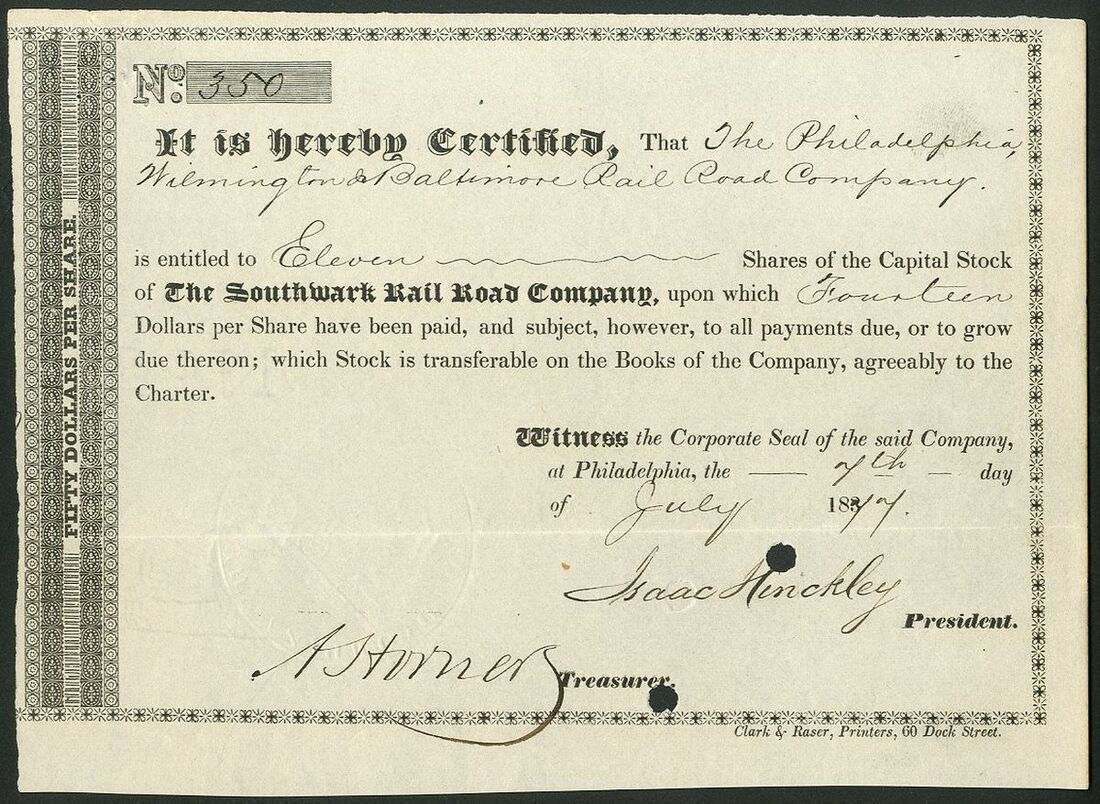 FIFTY DOLLARS PER SHARE.
No. 350
It is hereby Certified, That The Philadelphia,
Wilmington & Baltimore Rail Road Company.
is entitled to Eleven Shares of the Capital Stock
of The Southwark Rail Road Company, upon which Fourteen
Dollars per Share have been paid, and subject, however, to all payments due, or to grow
due thereon; which Stock is transferable on the Books of the Company, agreeably to the
Charter.
Witness the Corporate Seal of the said Company,
at Philadelphia, the — 7th — day
of July 1877.
Isaac Hinckley
President.
A Horner
Treasurer.
Clark & Raser, Printers, 60 Dock Street.